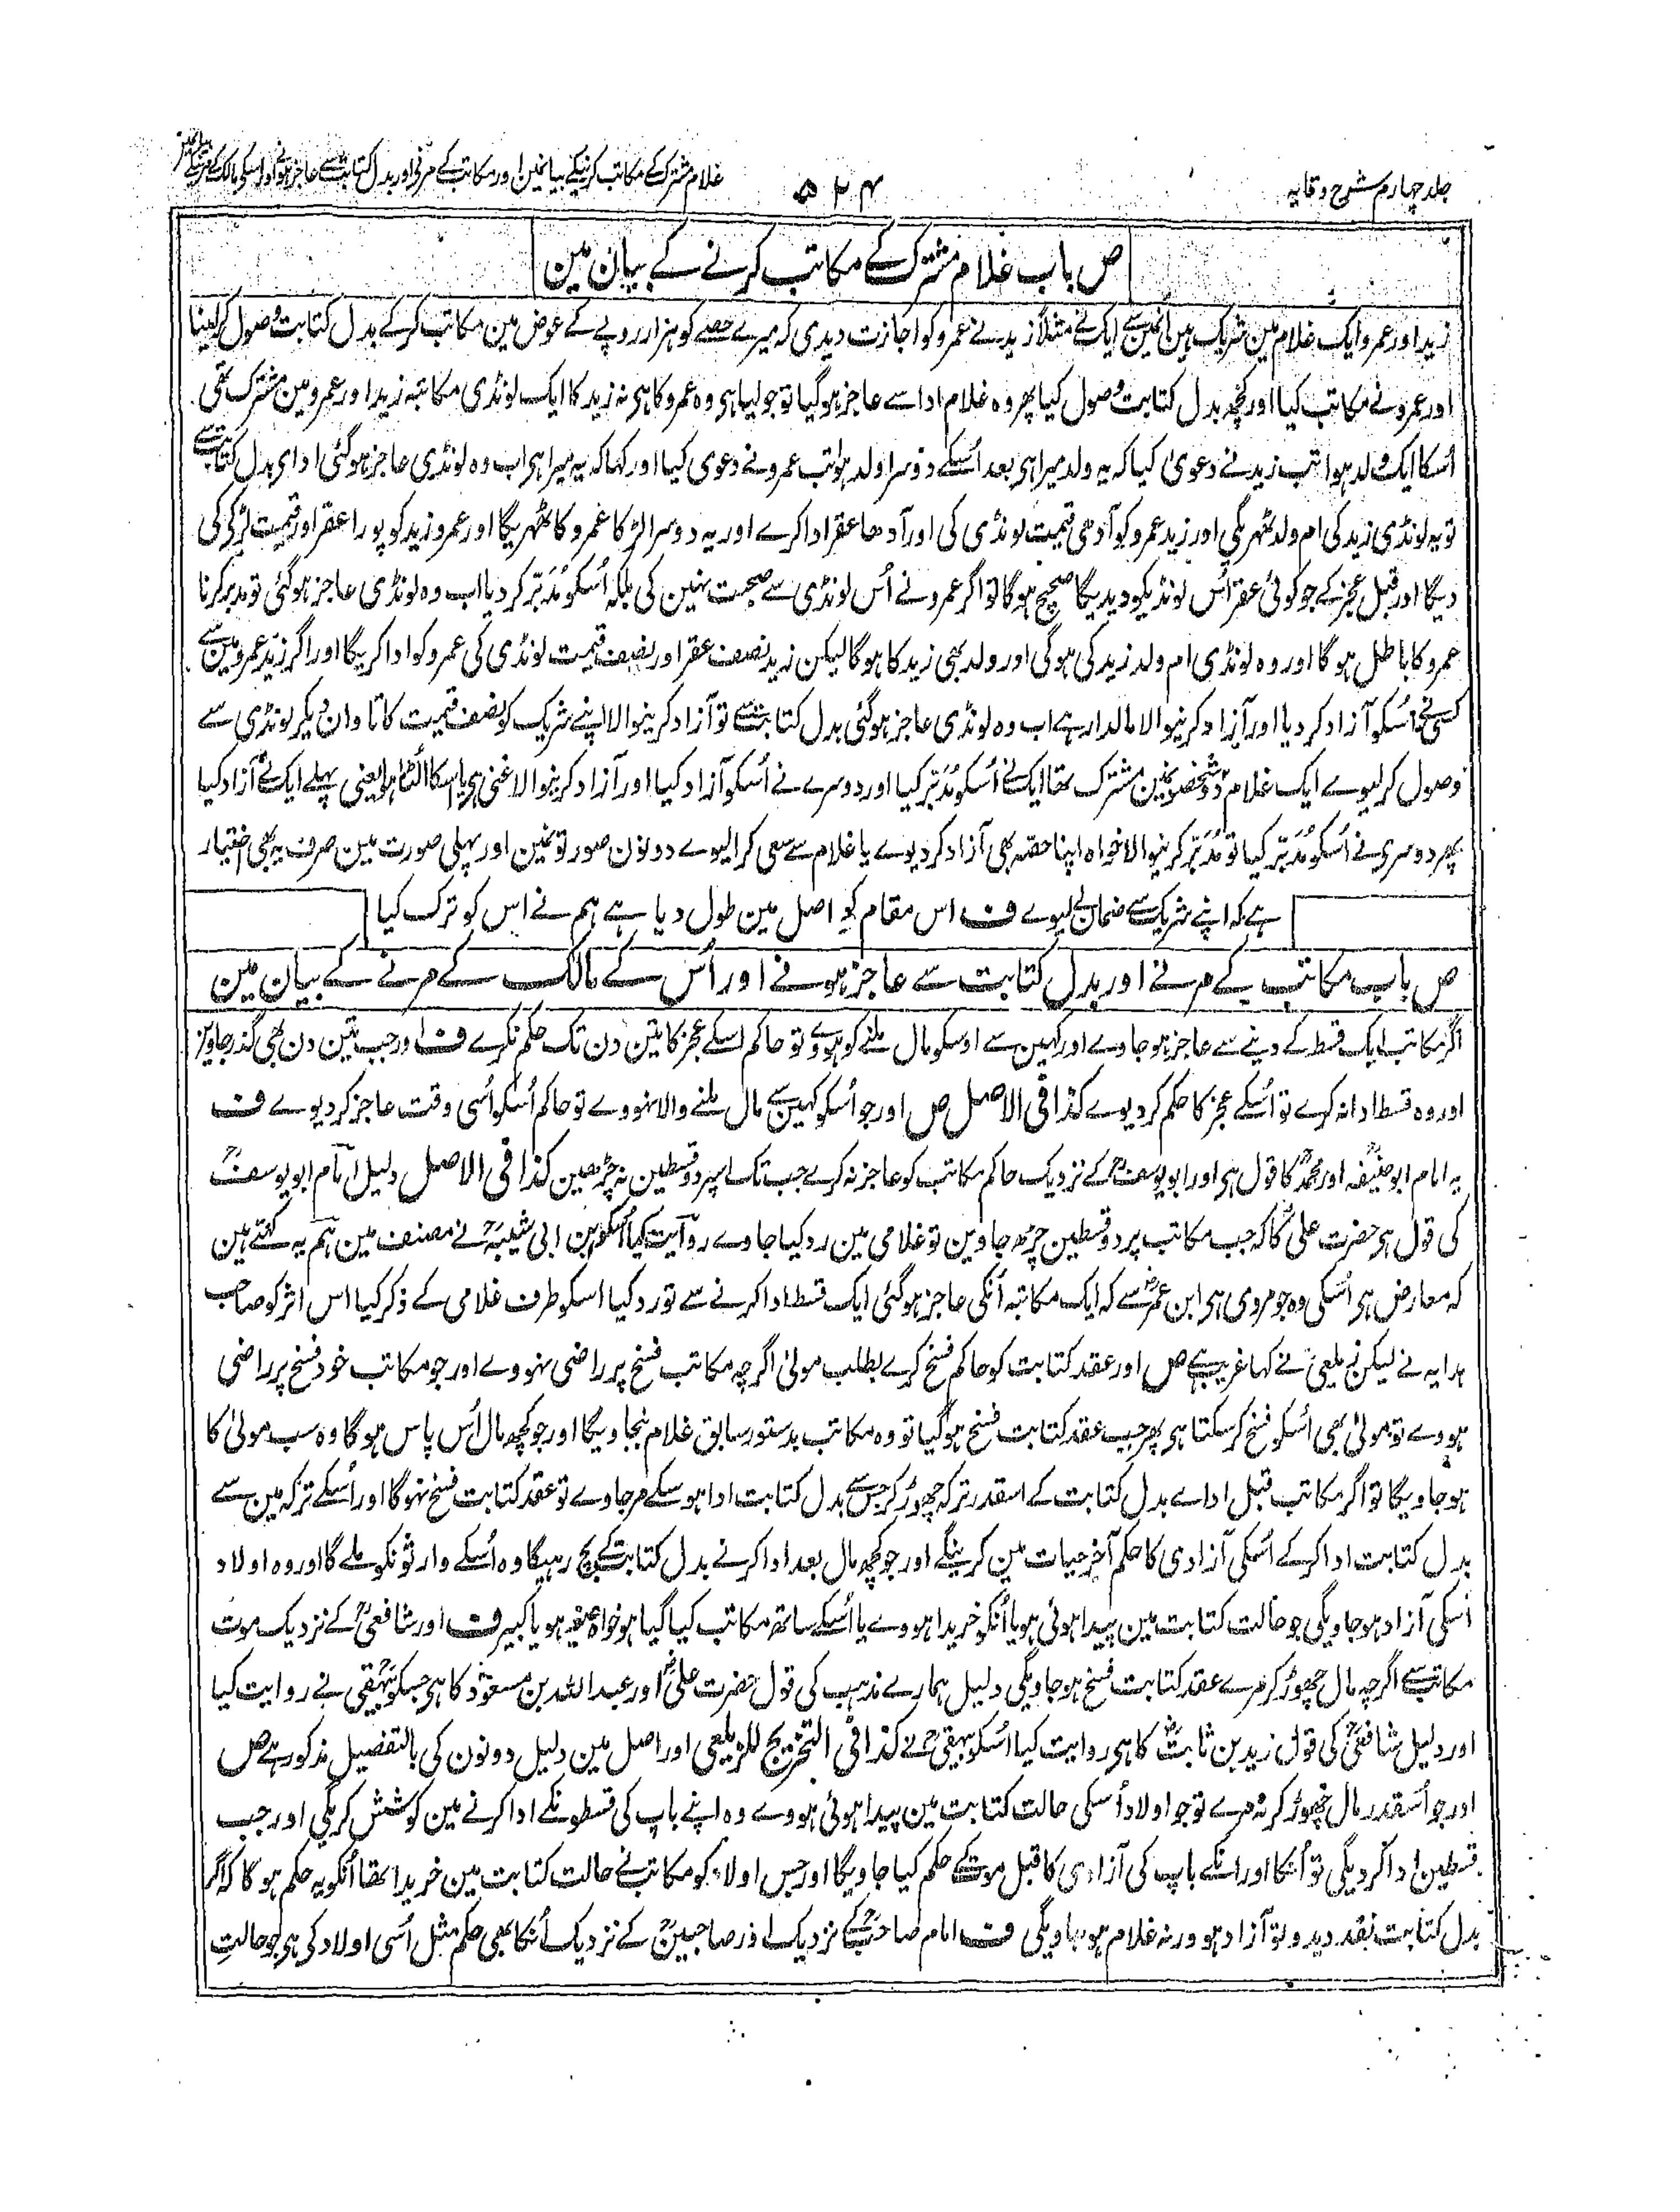 جلد چہارم شرح وقایہ
۵۲۴
غلام مشترک کے مکاتب کرنیکے بیانمین اور مکاتب کے مرنی اور بدل کتابت سے عاجز ہونے اور اسکی مالک کے مرنیکے بیانمین
ص باب غلام مشترک کے مکاتب کرنے کے بیان مین
زید اور عمرو ایک غلام مین شریک ہین انمین سے ایک نے مثلاً زید نے عمرو کو اجازت دیدی کہ میرے حصے کو ہزار روپے کے عوض مین مکاتب کر کے بدل کتابت وصول کر لینا
اور عمرو نے مکاتب کیا اور کچھ بدل کتابت وصول کیا پھر وہ غلام ادا سے عاجز ہوگیا تو جو لیا ہی وہ عمرو کا ہی نہ زید کا ایک لونڈی مکاتبہ زید اور عمرو مین مشترک تھی
اُسکا ایک ولد ہوا تب زید نے دعویٰ کیا کہ یہ ولد میرا ہی بعد اُسکے دوسرا ولد ہوا تب عمرو نے دعوی کیا اور کہا کہ یہ میرا ہی اب وہ لونڈی عاجز ہوگئی ادای بدل کتابت سے
تو یہ لونڈی زید کی ام ولد ٹھہریگی اور زید عمرو کو آدھی قیمت لونڈی کی اور آدھا عقر ادا کرے اور یہ دوسرا لڑکا عمرو کا ٹھہریگا اور عمرو زید کو پورا عقر اور قیمت لڑکی کی
دیگا اور قبل عجز کے جو کوئی عقر اُس لونڈیکو دیدیگا صحیح ہوگا تو اگر عمرو نے اُس لونڈی سے صحبت نہین کی بلکہ اُسکو مُدَبّر کر دیا اب وہ لونڈی عاجز ہوگئی تو مدبر کرنا
عمرو کا باطل ہوگا اور وہ لونڈی ام ولد زید کی ہوگی اور ولد بھی زید کا ہوگا لیکن زید نصف عقر اور نصف قیمت لونڈی کی عمرو کو ادا کریگا اور اگر زید عمرو مین سے
کسی نے اُسکو آزاد کر دیا اور آزاد کرنیوالا مالدار ہے اب وہ لونڈی عاجز ہوگئی بدل کتابت سے تو آزاد کرنیوالا اپنے شریک کو نصف قیمت کا تاوان دیکر لونڈی سے
وصول کر لیوے ایک غلام دو شخصونمین مشترک تھا ایک نے اُسکو مُدَبّر کیا اور دوسرے نے اُسکو آزاد کیا اور آزاد کرنیوالا غنی ہی یا اسکا اُلٹا ہو یعنی پہلے ایک نے آزاد کیا
پھر دوسری نے اُسکو مُدَبّر کیا تو مُدَبّر کرنیوالا خواہ اپنا حصّہ بھی آزاد کر دیوے یا غلام سے سعی کرا لیوے دونون صورتونمین اور پہلی صورت مین صرف یہ بھی اختیار
ہے کہ اپنے شریک سے ضمان لے لیوے ف اس مقام کو اصل مین طول دیا ہے ہم نے اس کو ترک کیا
ص باب مکاتب کے مرنے اور بدل کتابت سے عاجز ہونے اور اُس کے مالک کے مرنے کے بیان مین
اگر مکاتب ایک قسط کے دینے سے عاجز ہوجاوے اور کہین سے اوسکو مال ملنے کو ہووے تو حاکم اسکے عجز کا تین دن تک حکم نکرے ف اور جب تین دن بھی گذر جاوین
اور وہ قسط ادا نہ کرے تو اُسکے عجز کا حکم کر دیوے کذا فی الاصل ص اور جو اُسکو کہین سے مال ملنے والا نہووے تو حاکم اُسکو اُسی وقت عاجز کر دیوے ف
یہ امام ابو حنیفہؒ اور محمدؒ کا قول ہی اور ابو یوسفؒ کے نزدیک حاکم مکاتب کو عاجز نہ کرے جب تک اسپر دو قسطین نہ چڑھین کذا فی الاصل دلیل امام ابو یوسفؒ
کی قول ہی حضرت علیؓ کا کہ جب مکاتب پر دو قسطین چڑھ جاوین تو غلامی مین رد کیا جاوے روایت کیا اُسکو ابن ابی شیبہؒ نے مصنف مین ہم یہ کہتے ہین
کہ معارض ہی اُسکی وہ جو مروی ہی ابن عمرؓ سے کہ ایک مکاتبہ اُنکی عاجز ہوگئی ایک قسط ادا کرنے سے تو رد کیا اسکو طرف غلامی کے ذکر کیا اس اثر کو صاحب
ہدایہ نے لیکن زیلعیؒ نے کہا غریب ہے ص اور عقد کتابت کو حاکم فسخ کرے بطلب مولیٰ اگرچہ مکاتب فسخ پر راضی نہووے اور جو مکاتب خود فسخ پر راضی
ہووے تو مولیٰ بھی اُسکو فسخ کر سکتا ہی پھر جب عقد کتابت فسخ ہوگیا تو وہ مکاتب بدستور سابق غلام بنجاویگا اور جو کچھ مال اُس پاس ہوگا وہ سب مولیٰ کا
ہوجاویگا تو اگر مکاتب قبل اداے بدل کتابت کے اسقدر ترکہ چھوڑ کر جس سے بدل کتابت ادا ہوسکے مرجاوے تو عقد کتابت فسخ نہوگا اور اُسکے ترکہ مین سے
بدل کتابت ادا کر کے اُسکی آزادی کا حکم آخر حیات مین کرینگے اور جو کچھ مال بعد ادا کرنے بدل کتابت کے بچ رہیگا وہ اُسکے وارثونکو ملے گا اور وہ اولاد
اُسکی آزاد ہوجاویگی جو حالت کتابت مین پیدا ہوئی ہو یا اُنکو خریدا ہووے یا اُسکے ساتھ مکاتب کیا گیا ہو خواہ صغیر ہو یا کبیر ف اور شافعیؒ کے نزدیک موت
مکاتب سے اگرچہ مال چھوڑ کر مرے عقد کتابت فسخ ہوجاویگی دلیل ہمارے مذہب کی قول حضرت علیؓ اور عبد اللہ بن مسعودؓ کا ہی جسکو بیہقیؒ نے روایت کیا
اور دلیل شافعیؒ کی قول زید بن ثابتؓ کا ہی روایت کیا اُسکو بیہقیؒ نے کذا فی التخریج للزیلعی اور اصل مین دلیل دونون کی بالتفصیل مذکور ہے ص
اور جو اُسقدر مال چھوڑ کر نہ مرے تو جو اولاد اُسکی حالت کتابت مین پیدا ہوئی ہووے وہ اپنے باپ کی قسطونکے ادا کرنے مین کوشش کریگی اور جب
قسطین ادا کر دیگی تو اُنکا اور انکے باپ کی آزادی کا قبل موت کے حکم کیا جاویگا اور جس اولاد کو مکاتب نے حالت کتابت مین خریدا تھا اُنکو یہ حکم ہوگا کہ اگر
بدل کتابت نقد دیدو تو آزاد ہو ورنہ غلام ہوجاویگی ف امام صاحبؒ کے نزدیک اور صاحبینؒ کے نزدیک اُنکا بھی حکم مثل اُسی اولاد کی ہی جو حالت